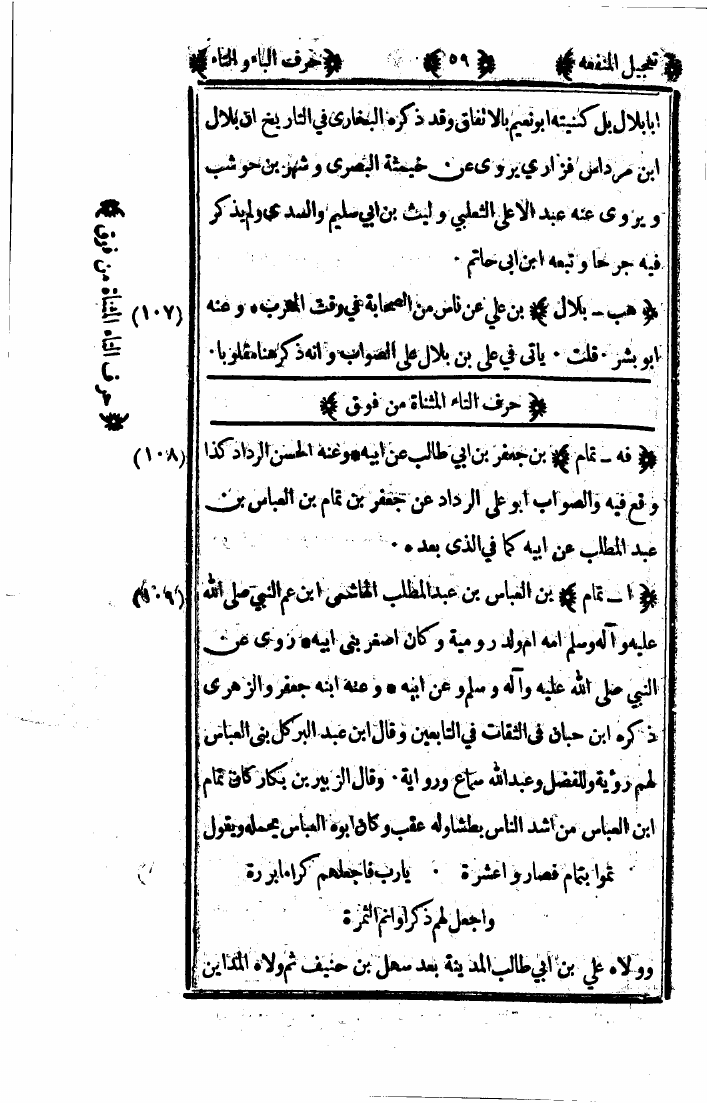 ﴿ تعجيل المنفعه ﴾ ﴿ ٥٩ ﴾ ﴿ حرف الباء والتاء ﴾
ابا بلال بل كنيته ابونعيم بالاتفاق وقد ذكره البخارى في التاريخ ان بلال
ابن مرداس فزاري يروى عن خيثمة البصرى وشهر بن حوشب
ويروى عنه عبد الاعلى الثعلبي وليث بن ابي سليم والسدى ولم يذكر
فيه جرحا وتبعه ابن ابى حاتم ٠
﴿ هب ـ بلال ﴾ بن علي عن ناس من الصحابة في وقت المغرب * وعنه (١٠٧)
ابو بشر ٠ قلت ٠ ياتى في على بن بلال على الصواب وانه ذكر هنا مقلوبا ٠
﴿ حرف التاء المثناة من فوق ﴾
﴿ فه ـ تمام ﴾ بن جعفر بن ابي طالب عن ابيه * وعنه الحسن الرداد كذا (١٠٨)
وقع فيه والصواب ابو على الرداد عن جعفر بن تمام بن العباس بن
عبد المطلب عن ابيه كما في الذى بعده * ٠
﴿ ا ـ تمام ﴾ بن العباس بن عبد المطلب الهاشمى ابن عم النبي صلى الله (١٠٩)
عليه وآله وسلم امه ام ولد رومية وكان اصغر بنى ابيه * روى عن
النبي صلى الله عليه وآله وسلم وعن ابيه * وعنه ابنه جعفر والزهرى
ذكره ابن حبان فى الثقات في التابعين وقال ابن عبد البر كل بنى العباس
لهم رؤية وللفضل وعبد الله سماع ورواية ٠ وقال الزبير بن بكار كان تمام
ابن العباس من اشد الناس بطشا وله عقب وكان ابوه العباس يحمله ويقول
تموا بتمام فصاروا عشرة ٠ يارب فاجعلهم كراما بررة
واجعل لهم ذكرا وانم الثمرة
وولاه علي بن ابي طالب المدينة بعد سهل بن حنيف ثم ولاه المداين
﴿ حرف التاء المثناة من فوق ﴾